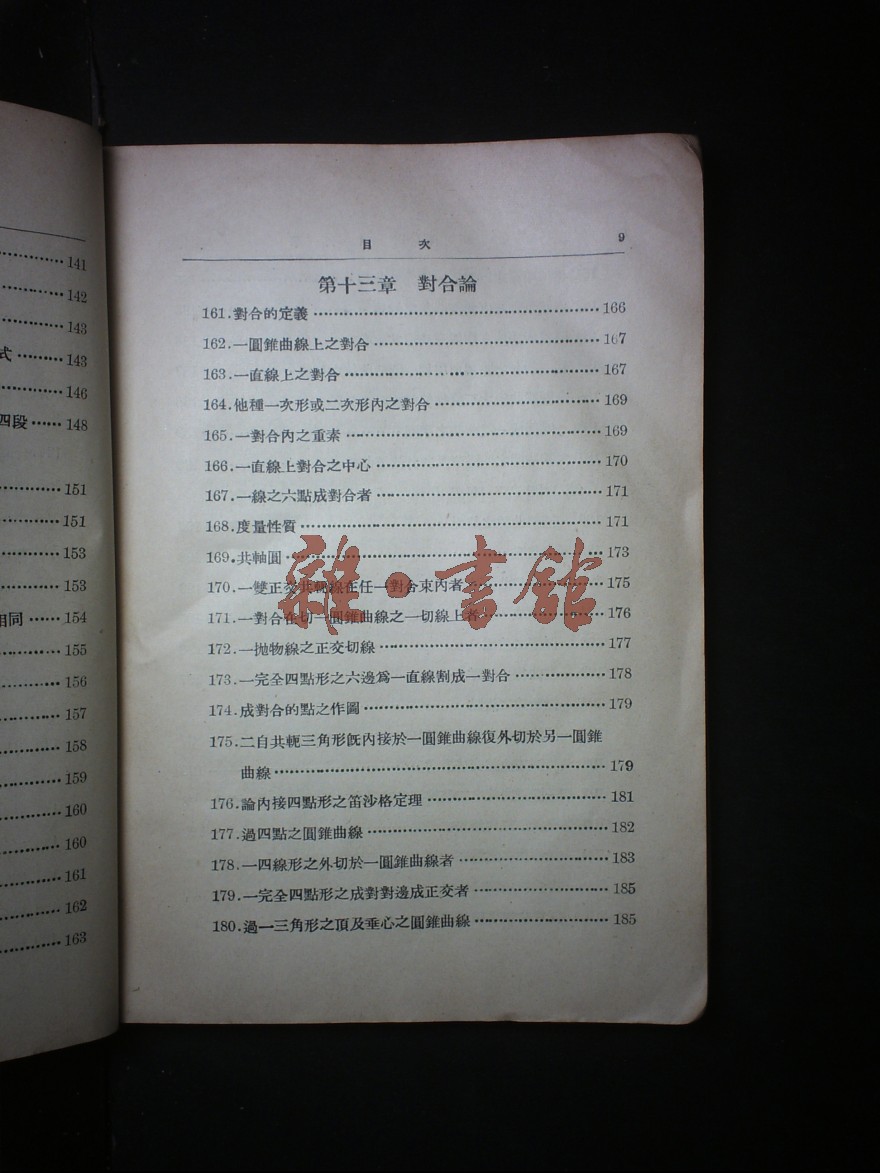 141
142
143
式 ········· 143
146
四段 ······ 148
151
151
153
153
相同 ······ 154
155
156
157
158
159
160
160
161
162
163
目 次 9
第十三章 對合論
161.對合的定義 ········· 166
162.一圓錐曲線上之對合 ········· 167
163.一直線上之對合 ········· 167
164.他種一次形或二次形內之對合 ········· 169
165.一對合內之重素 ········· 169
166.一直線上對合之中心 ········· 170
167.一線之六點成對合者 ········· 171
168.度量性質 ········· 171
169.共軸圓 ········· 173
170.一雙正交共軛線在任一對合束內者 ········· 175
171.一對合在切一圓錐曲線之一切線上者 ········· 176
172.一拋物線之正交切線 ········· 177
173.一完全四點形之六邊爲一直線割成一對合 ········· 178
174.成對合的點之作圖 ········· 179
175.二自共軛三角形旣內接於一圓錐曲線復外切於另一圓錐
曲線 ········· 179
176.論內接四點形之笛沙格定理 ········· 181
177.過四點之圓錐曲線 ········· 182
178.一四線形之外切於一圓錐曲線者 ········· 183
179.一完全四點形之成對對邊成正交者 ········· 185
180.過一三角形之頂及垂心之圓錐曲線 ········· 185
雜·書館